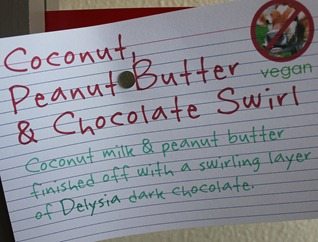 Coconut,
Peanut Butter
& Chocolate Swirl
vegan
Coconut milk & peanut butter
finished off with a swirling layer
of Delysia dark chocolate.